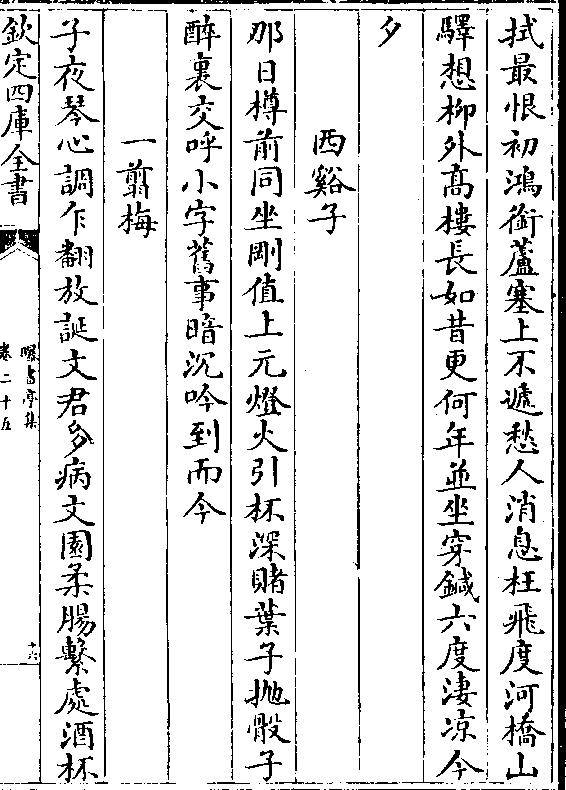 拭最恨初鴻銜蘆塞上不遞愁人消息枉飛度河橋山
驛想柳外髙樓長如昔更何年並坐穿鍼六度淒凉今
夕
西谿子
那日樽前同坐剛值上元燈火引杯深賭葉子抛骰子
醉裏交呼小字舊事暗沉吟到而今
一翦梅
子夜琴心調乍翻放誕文君多病文園柔腸繫處酒杯
欽定四庫全書
曝書亭集
卷二十五
十六